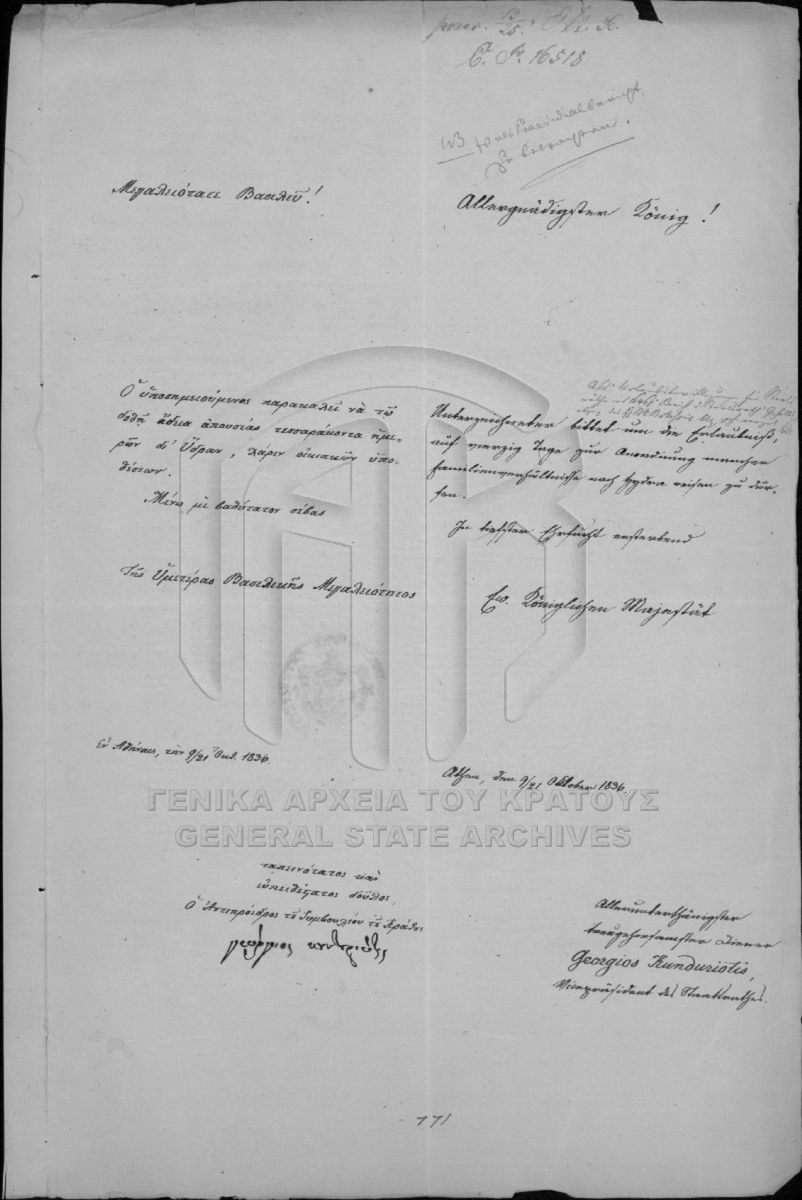 praes. 13/25.
C. N. 16518
NB
Μεγαλειότατε Βασιλεῦ!
Ὁ ὑποσημειούμενος παρακαλεῖ νὰ τῷ
δοθῇ ἄδεια ἀπουσίας τεσσαράκοντα ἡμε-
ρῶν δι' Ὕδραν, χάριν οἰκιακῶν ὑπο-
θέσεων.
Μένω μὲ βαθύτατον σέβας
Τῆς Ὑμετέρας Βασιλικῆς Μεγαλειότητος
Ἐν Ἀθήναις, τὴν 9/21 Ὀκτ. 1836.
ταπεινότατος καὶ
εὐπειθέστατος δοῦλος,
Ὁ Ἀντιπρόεδρος τοῦ Συμβουλίου τοῦ Κράτους
Allergnädigster König!
Unterzeichneter bittet um die Erlaubniß,
auf vierzig Tage zur Anordnung mancher
Familienverhältnisse nach Hydra reisen zu dür-
fen.
In tiefster Ehrfurcht ersterbend
Ew. Königlichen Majestät
Athen, den 9/21 Oktober 1836.
Allerunterthänigster
treugehorsamster Diener
Georgios Kunduriotis,
Vicepräsident des Staatsrathes.
ΓΕΝΙΚΑ ΑΡΧΕΙΑ ΤΟΥ ΚΡΑΤΟΥΣ
GENERAL STATE ARCHIVES
771